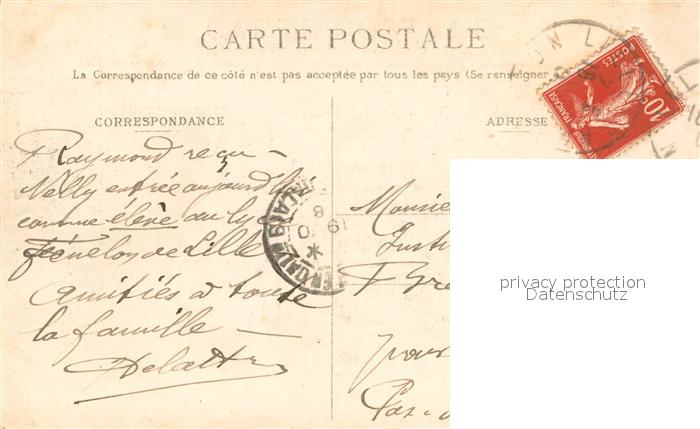 CARTE POSTALE
La Correspondance de ce côté n'est pas acceptée par tous les pays (Se renseigner
CORRESPONDANCE
ADRESSE
Raymond reçu —
Nelly entrée aujourd'hui
comme élève au lycée
Fénelon de Lille
Amitiés à toute
la famille —
Delattre
Monsie
Instit
pour
Pas-d
POSTES
10c
privacy protection
Datenschutz